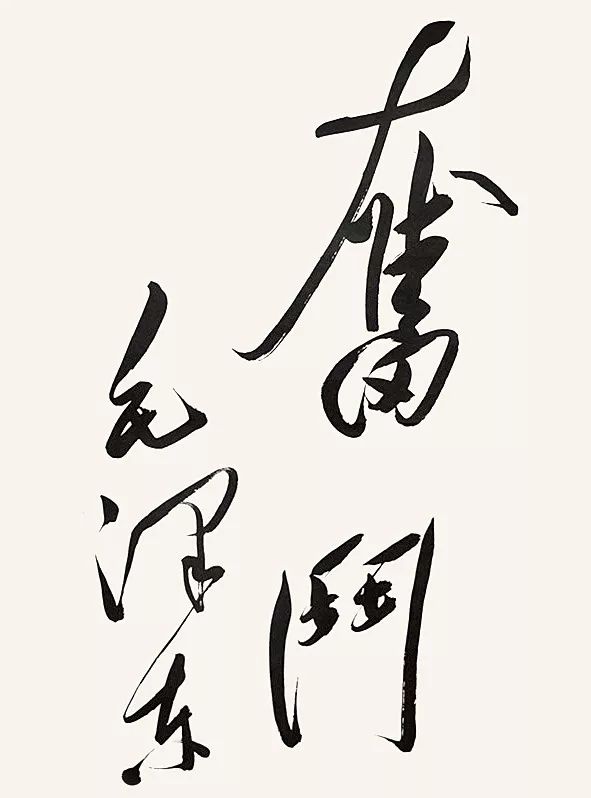 奮鬥
毛泽东